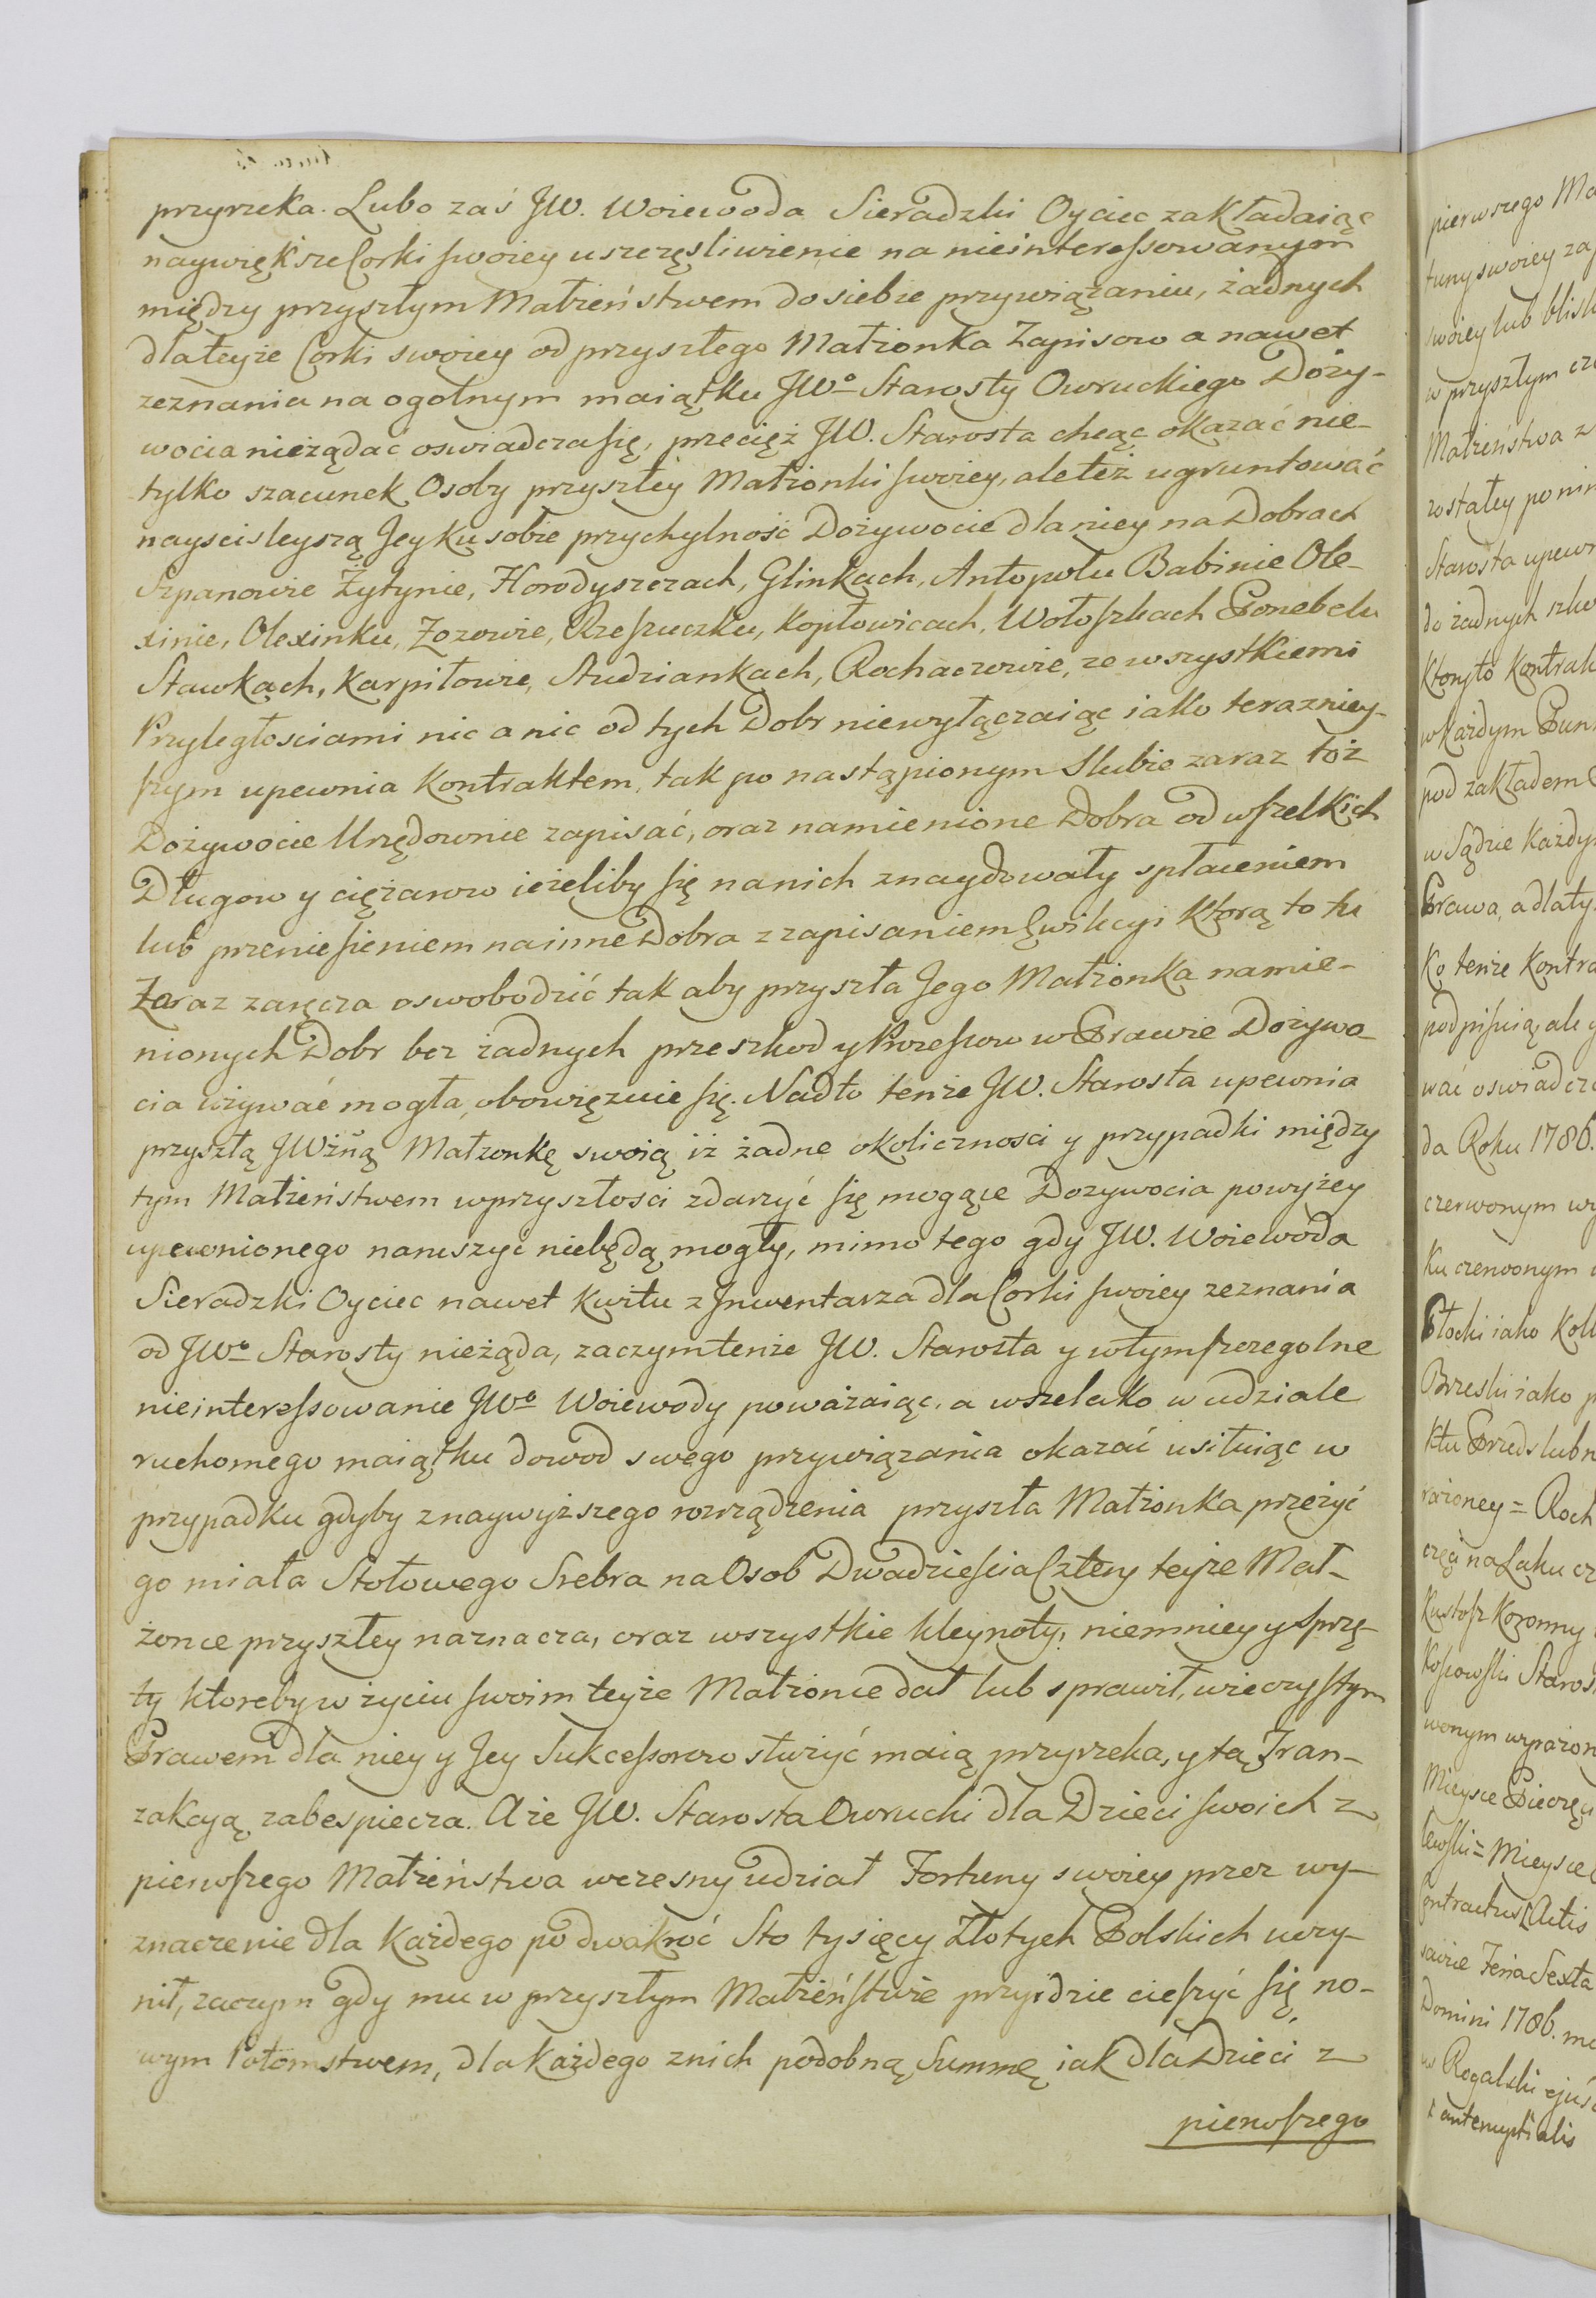 przyrzeka. Lubo zaś JW. Woiewoda Sieradzki Oyciec zakładaiąc
naywięksże Corki swoiey uszczęsliwienie na nieinteressowanym
między przyszłym Małżeństwem do siebie przywiązaniu, żadnych
dla teyże Corki swoiey od przyszłego Małżonka Zapisow a nawet
zeznania na ogolnym maiątku JWo Starosty Owruckiego Doży-
wocia nieżądać oswiadcza się, przecięż JW. Starosta chcąc okazać nie-
tylko szacunek Osoby przyszłey Małżonki swoiey, ale też ugruntować
nayscisleyszą Jey ku sobie przychylność Dożywocie dla niey na Dobrach
Szpanowie Żytynie, Horodyszczach, Glinkach, Antopolu Babinie Ole-
xinie, Olexinku, Zozowie, Rzeszuczku, Kopłowicach, Wołoszkach Ponebelu
Stawkach, Karpiłowie, Studziankach, Rochaczowie, ze wszystkiemi
Przyległosciami nic a nic od tych Dobr niewyłączaiąc iako terazniey-
szym upewnia Kontraktem, tak po nastąpionym Slubie zaraz toż
Dożywocie Urzędownie zapisać, oraz namienione Dobra od wszelkich
Długow y ciężarow ieżeliby się na nich znaydowały spłaceniem
lub przeniesieniem na inne Dobra z zapisaniem Ewikcyi którą to tu
Zaraz zaręcza oswobodzić tak aby przyszła Jego Małżonka namie-
nionych Dobr bez żadnych przeszkod y Procesow w Prawie Dożywo-
cia używać mogła, obowięzuie się. Nadto tenże JW. Starosta upewnia
przyszłą JWżną Małżonkę swoią iż żadne okolicznosci y przypadki między
tym Małżeństwem wprzyszłosci zdarzyć się mogące Dozywocia powyżey
upewnionego naruszyć niebędą mogły, mimo tego gdy JW. Woiewoda
Sieradzki Oyciec nawet kwitu z Jnwentarza dla Corki swoiey zeznania
od JWo Starosty nieżąda, zaczym tenże JW. Starosta y w tym szczegolne
nieinteressowanie JWo Woiewody poważaiąc, a wszelako w udziale
ruchomego maiątku dowod swego przywiązania okazać usiłuiąc w
przypadku gdyby z naywyższego rozrządzenia przyszła Małżonka przeżyć
go miała Stołowego Srebra na Osob Dwadziescia Cztery teyże Mał-
żonce przyszłey naznacza, oraz wszystkie kleynoty, niemniey y sprzę-
ty ktoreby w życiu swoim teyże Małżonce dał lub sprawił, wieczystym
Prawem dla niey y Jey Sukcessorow służyć maią przyrzeka, y tą Tran-
zakcyą zabespiecza. A że JW. Starosta Owrucki dla Dzieci swoich z
pierwszego Małżeństwa wczesny udział Fortuny swoiey przez wy-
znaczenie dla każdego po dwakroć Sto tysięcy Złotych Polskich uczy-
nił, zaczym gdy mu w przyszłym Małżeństwie przyidzie cieszyć się no-
wym Potomstwem, dla każdego znich podobną Summę iak dla Dzieci z
pierwszego
pierwszego
tuny swoiey
swoiey lub
w przyszłym
Małżeństwa z
zostałey po
Starosta
do żadnych
w każdym
pod zakładem
w Sądzie
Prawa, a dla
Ko tenże
da Roku 1786.
czerwonym
Ku czerwonym
iako
Brzeski iako
rażoney = Roch
Kustosz Koronny
Kossowski
wonym
Mieysce
Mieysce
Actis
Feria Sexta
Domini 1786.
Rogalski
antenuptialis